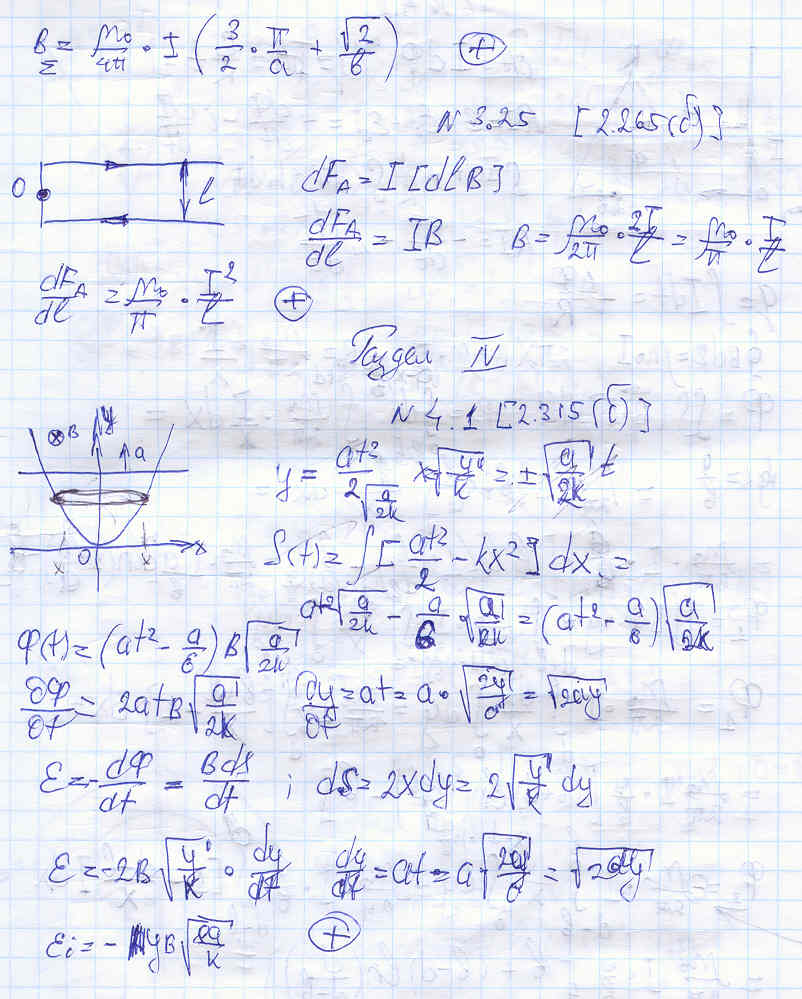 B_Σ = μ₀/4π · I (3/2 · π/a + √2/b) ⊕
N 3.25 [2.265(б)]
O l
dF_A = I [dl B]
dF_A/dl = IB B = μ₀/2π · 2I/l = μ₀/π · I/l
dF_A/dl = μ₀/π · I²/l ⊕
Раздел IV
N 4.1 [2.315(б)]
y B a O x x x
y = at²/2 x = √(y/k) = ±√(a/2k) t
S(t) = ∫[at²/2 - kx²] dx =
√(a/2k)
at²√(a/2k) - a/6 · √(a/2k) = (at² - a/6) √(a/2k)
Φ(t) = (at² - a/6) B √(a/2k)
∂Φ/∂t = 2atB √(a/2k) ∂y/∂t = at = a·√(2y/a) = √(2ay)
ε = -dΦ/dt = BdS/dt ; dS = 2xdy = 2√(y/k) dy
ε = -2B √(y/k) · dy/dt dy/dt = at = a √(2y/a) = √(2ay)
εi = - yB √(8a/k) ⊕